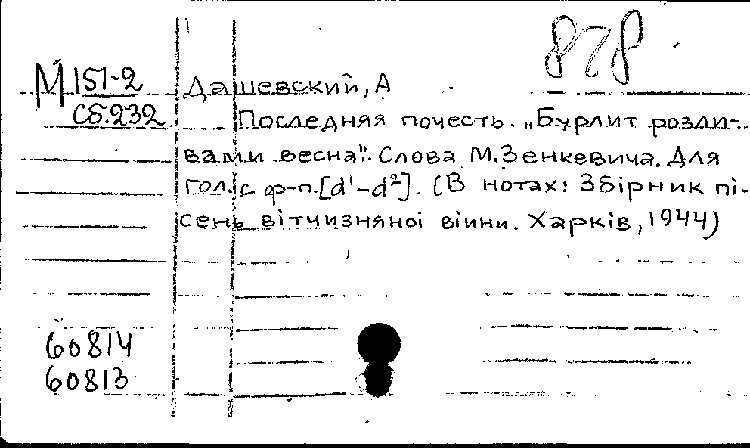 878
М 151-2
Сб.232
Дашевский, А
Последняя почесть. „Бурлит розли-
вами весна". Слова М. Зенкевича. Для
гол. с ф-п. [d¹-d²]. (В нотах: Збірник пі-
сень вітчизняної війни. Харків, 1944)
60814
60813